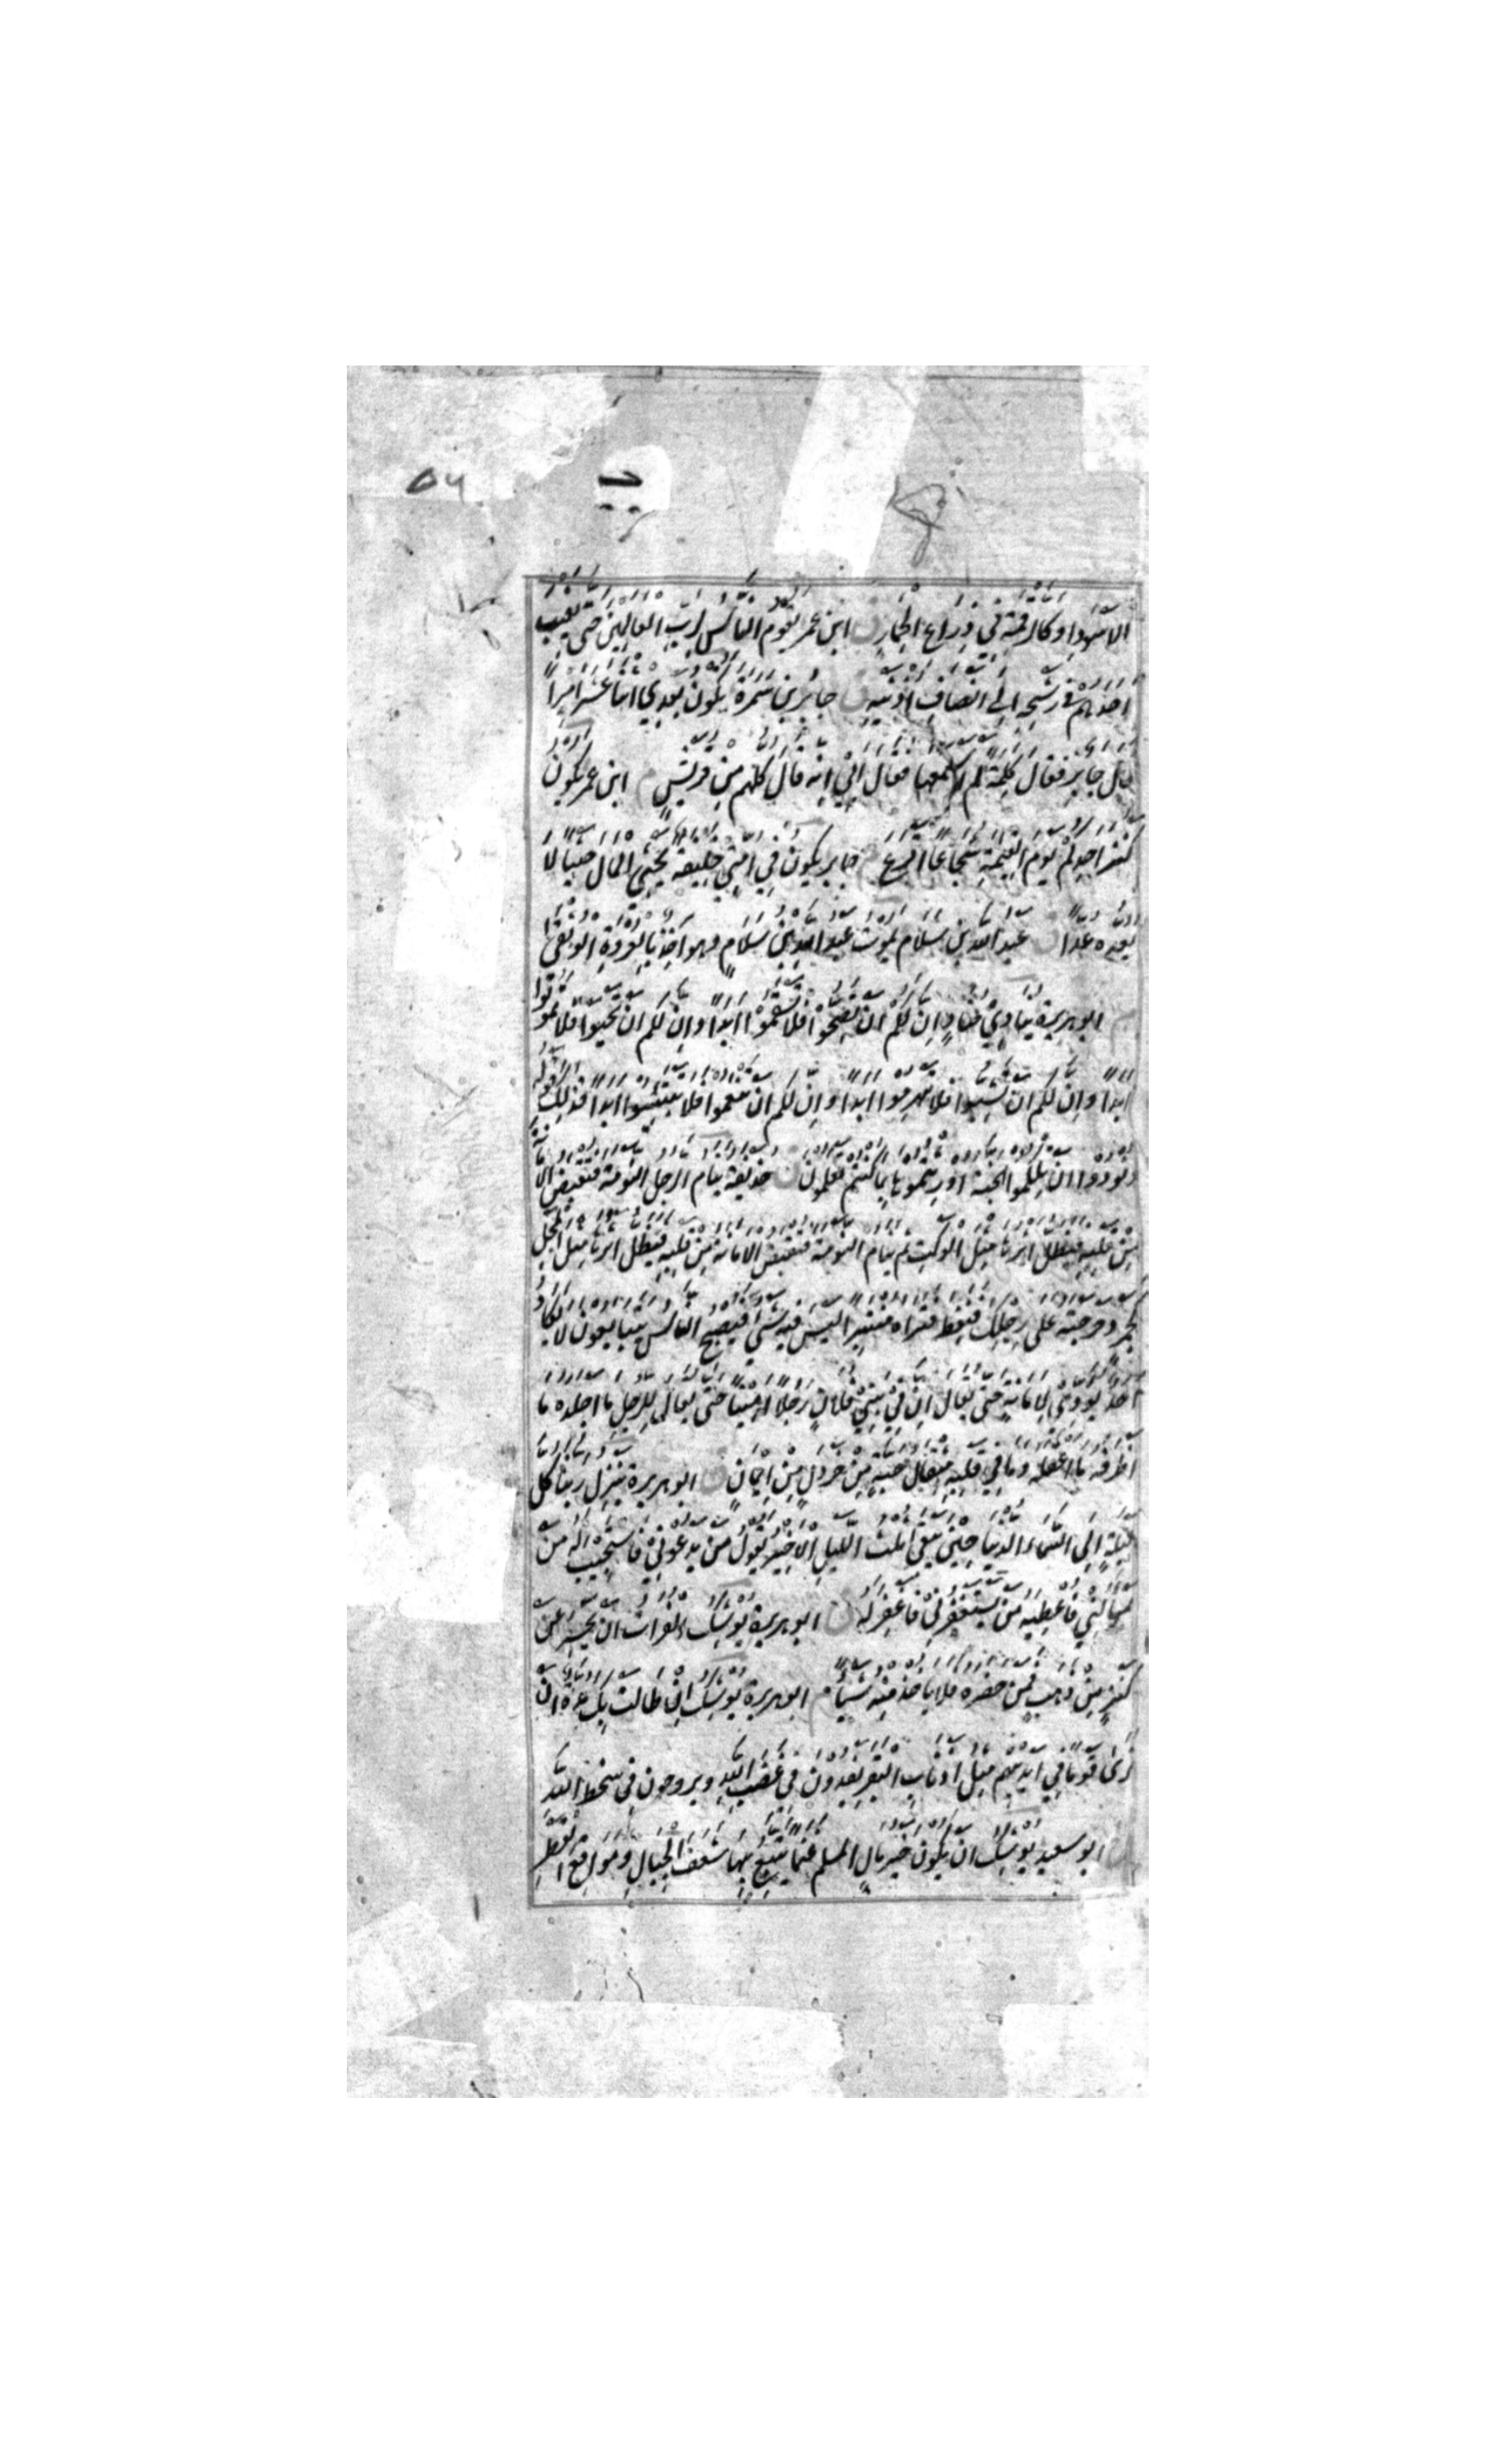 ۵۷
الأسودا وكالرقمة في ذراع الحمار ابن عمر يقوم الناس لرب العالمين حتى يغيب
احدهم في رشحه الى انصاف اذنيه جابر بن سمرة يكون بعدي اثنا عشر اميرا
قال جابر فقال كلمة لم اسمعها فقال ابي انه قال كلهم من قريش م ابن عمر يكون
كنز احدكم يوم القيمة شجاعا اقرع جابر يكون في امتي خليفة يحثي المال حثيا لا
يعده عدا عبد الله بن سلام يموت عبد الله بن سلام وهو اخذ بالعروة الوثقى
م ابو هريرة ينادي مناد ان لكم ان تصحوا فلا تسقموا ابدا وان لكم ان تحيوا فلا تموتوا
ابدا وان لكم ان تشبوا فلا تهرموا ابدا وان لكم ان تنعموا فلا تبتئسوا ابدا فذلك قوله
ونودوا ان تلكموا الجنة اورثتموها بما كنتم تعملون ق حذيفة ينام الرجل النومة فتقبض الامانة
من قلبه فيظل اثرها مثل الوكت ثم ينام النومة فتقبض الامانة من قلبه فيظل اثرها مثل المجل
كجمر دحرجته على رجلك فنفط فتراه منتبرا ليس فيه شئ فيصبح الناس يتبايعون لا يكاد
احد يؤدي الامانة حتى يقال ان في بني فلان رجلا امينا حتى يقال للرجل ما اجلده ما
اظرفه ما اعقله وما في قلبه مثقال حبة من خردل من ايمان ق ابو هريرة ينزل ربنا كل
ليلة الى السماء الدنيا حين يبقى ثلث الليل الاخير يقول من يدعوني فاستجيب له من
يسألني فاعطيه من يستغفرني فاغفر له ق ابو هريرة يوشك الفرات ان يحسر عن
كنز من ذهب فمن حضره فلا ياخذ منه شيئا م ابو هريرة يوشك ان طالت بك مدة ان
ترى قوما في ايديهم مثل اذناب البقر يغدون في غضب الله ويروحون في سخط الله
ابو سعيد يوشك ان يكون خير مال المسلم غنما يتبع بها شعف الجبال ومواقع القطر